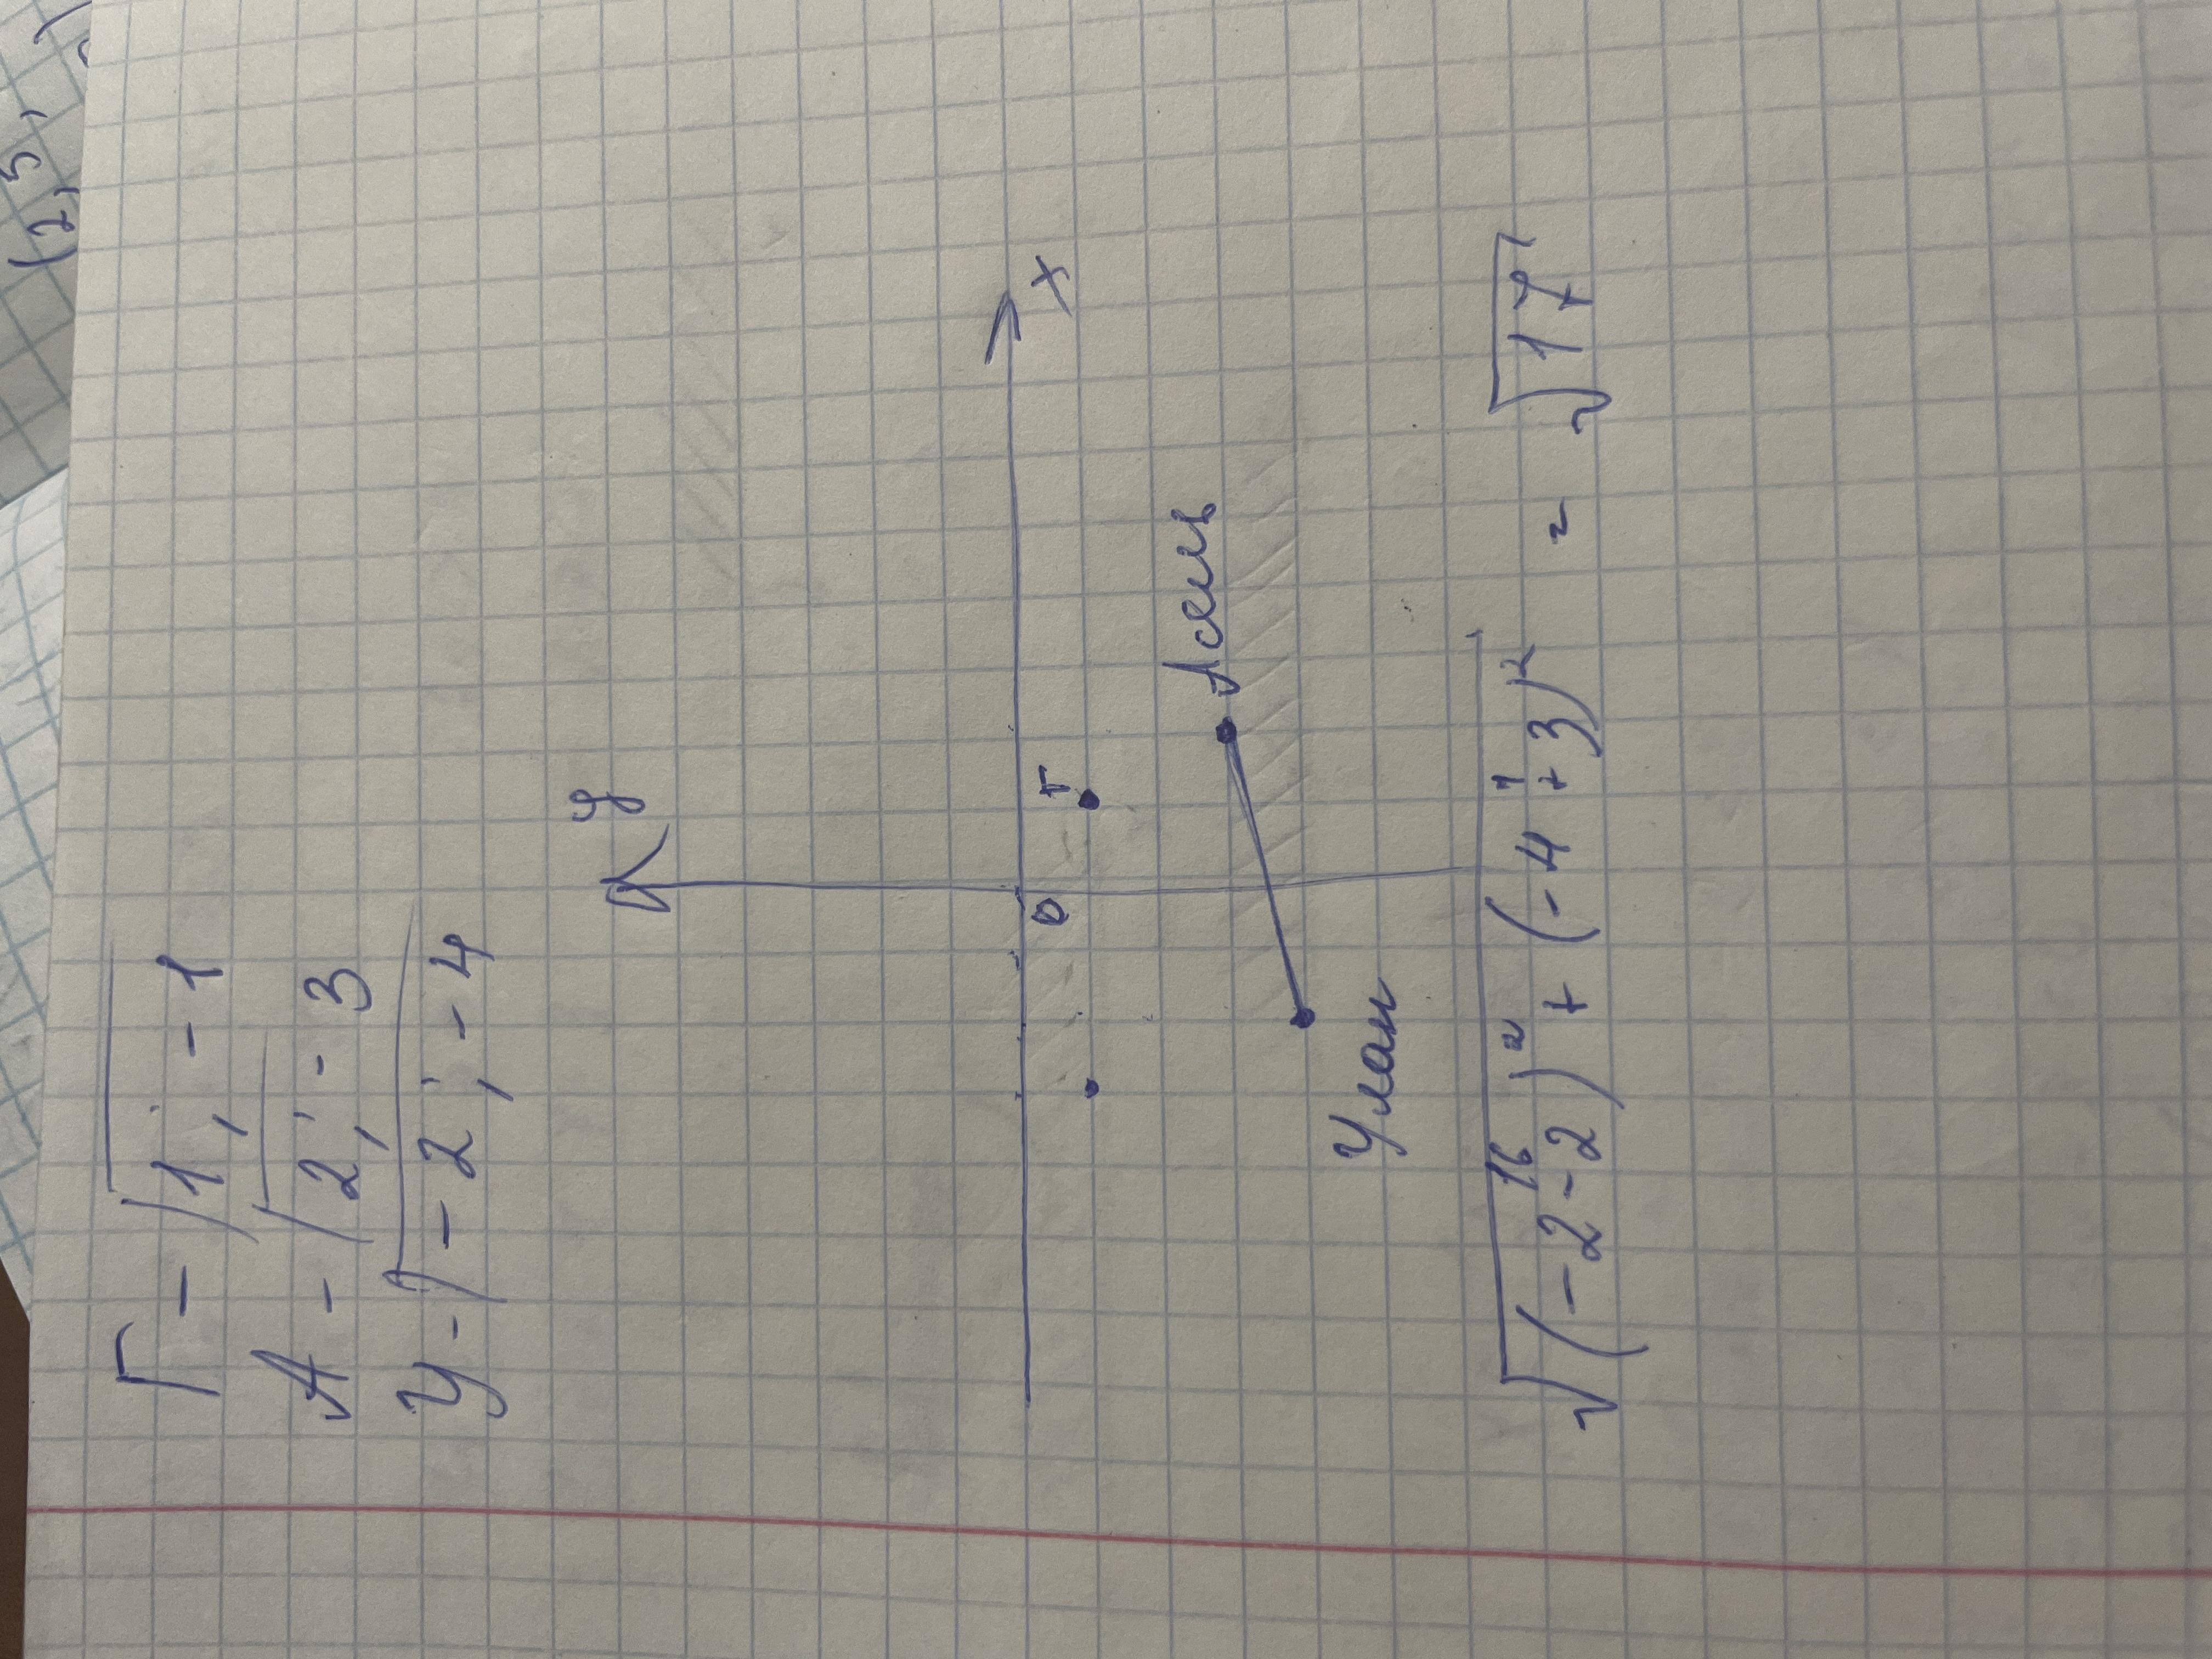 (2,5,
Г - (1; -1
А - (2; -3
У - (-2; -4
y
x
0
Г
Асель
Улан
√(-2-2)² + (-4+3)² = √17
16 1